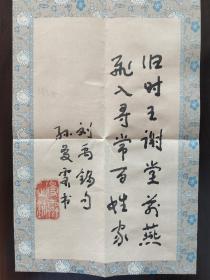 旧时王谢堂前燕
飞入寻常百姓家
刘禹锡句
孙爱雲书